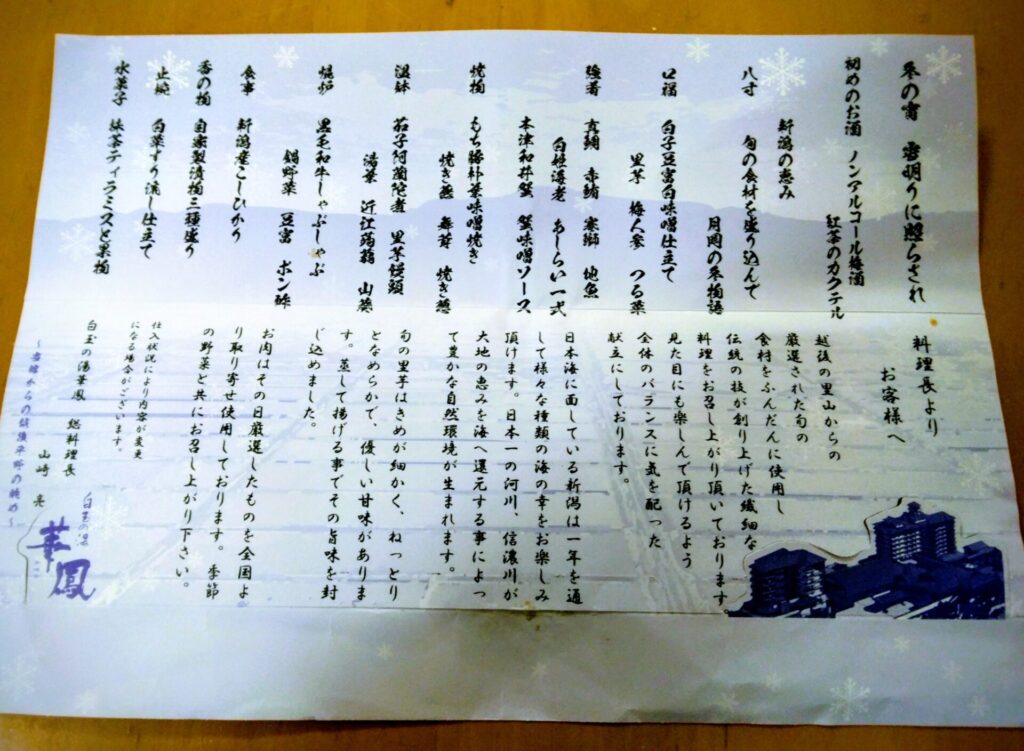 冬の宵 雪明りに照らされ
初めのお酒 ノンアルコール梅酒
紅茶のカクテル
新潟の恵み
八寸 旬の食材を盛り込んで
月岡の冬物語
口福 白子豆富白味噌仕立て
里芋 梅人参 つる菜
強肴 真鯛 赤鮪 寒鰤 地魚
白姫海老 あしらい一式
本津和井蟹 蟹味噌ソース
焼物 もち豚朴葉味噌焼き
焼き茄 舞茸 焼き葱
温鉢 茄子阿蘭陀煮 里芋饅頭
湯葉 近江蒟蒻 山葵
焜炉 黒毛和牛しゃぶしゃぶ
鍋野菜 豆富 ポン酢
食事 新潟産こしひかり
香の物 自家製漬物三種盛り
止椀 白菜すり流し仕立て
水菓子 抹茶ティラミスと果物
料理長より
お客様へ
越後の里山からの
厳選された旬の
食材をふんだんに使用し
伝統の技が創り上げた繊細な
料理をお召し上がり頂いております
見た目にも楽しんで頂けるよう
全体のバランスに気を配った
献立にしております。
日本海に面している新潟は一年を通
して様々な種類の海の幸をお楽しみ
頂けます。日本一の河川、信濃川が
大地の恵みを海へ還元する事によっ
て豊かな自然環境が生まれます。
旬の里芋はきめが細かく、ねっとり
となめらかで、優しい甘味がありま
す。蒸して揚げる事でその旨味を封
じ込めました。
お肉はその日厳選したものを全国よ
り取り寄せ使用しております。季節
の野菜と共にお召し上がり下さい。
仕入状況により内容が変更
になる場合がございます。
白玉の湯華鳳 総料理長
山崎 亮
白玉の湯
華鳳
～客館からの越後平野の眺め～